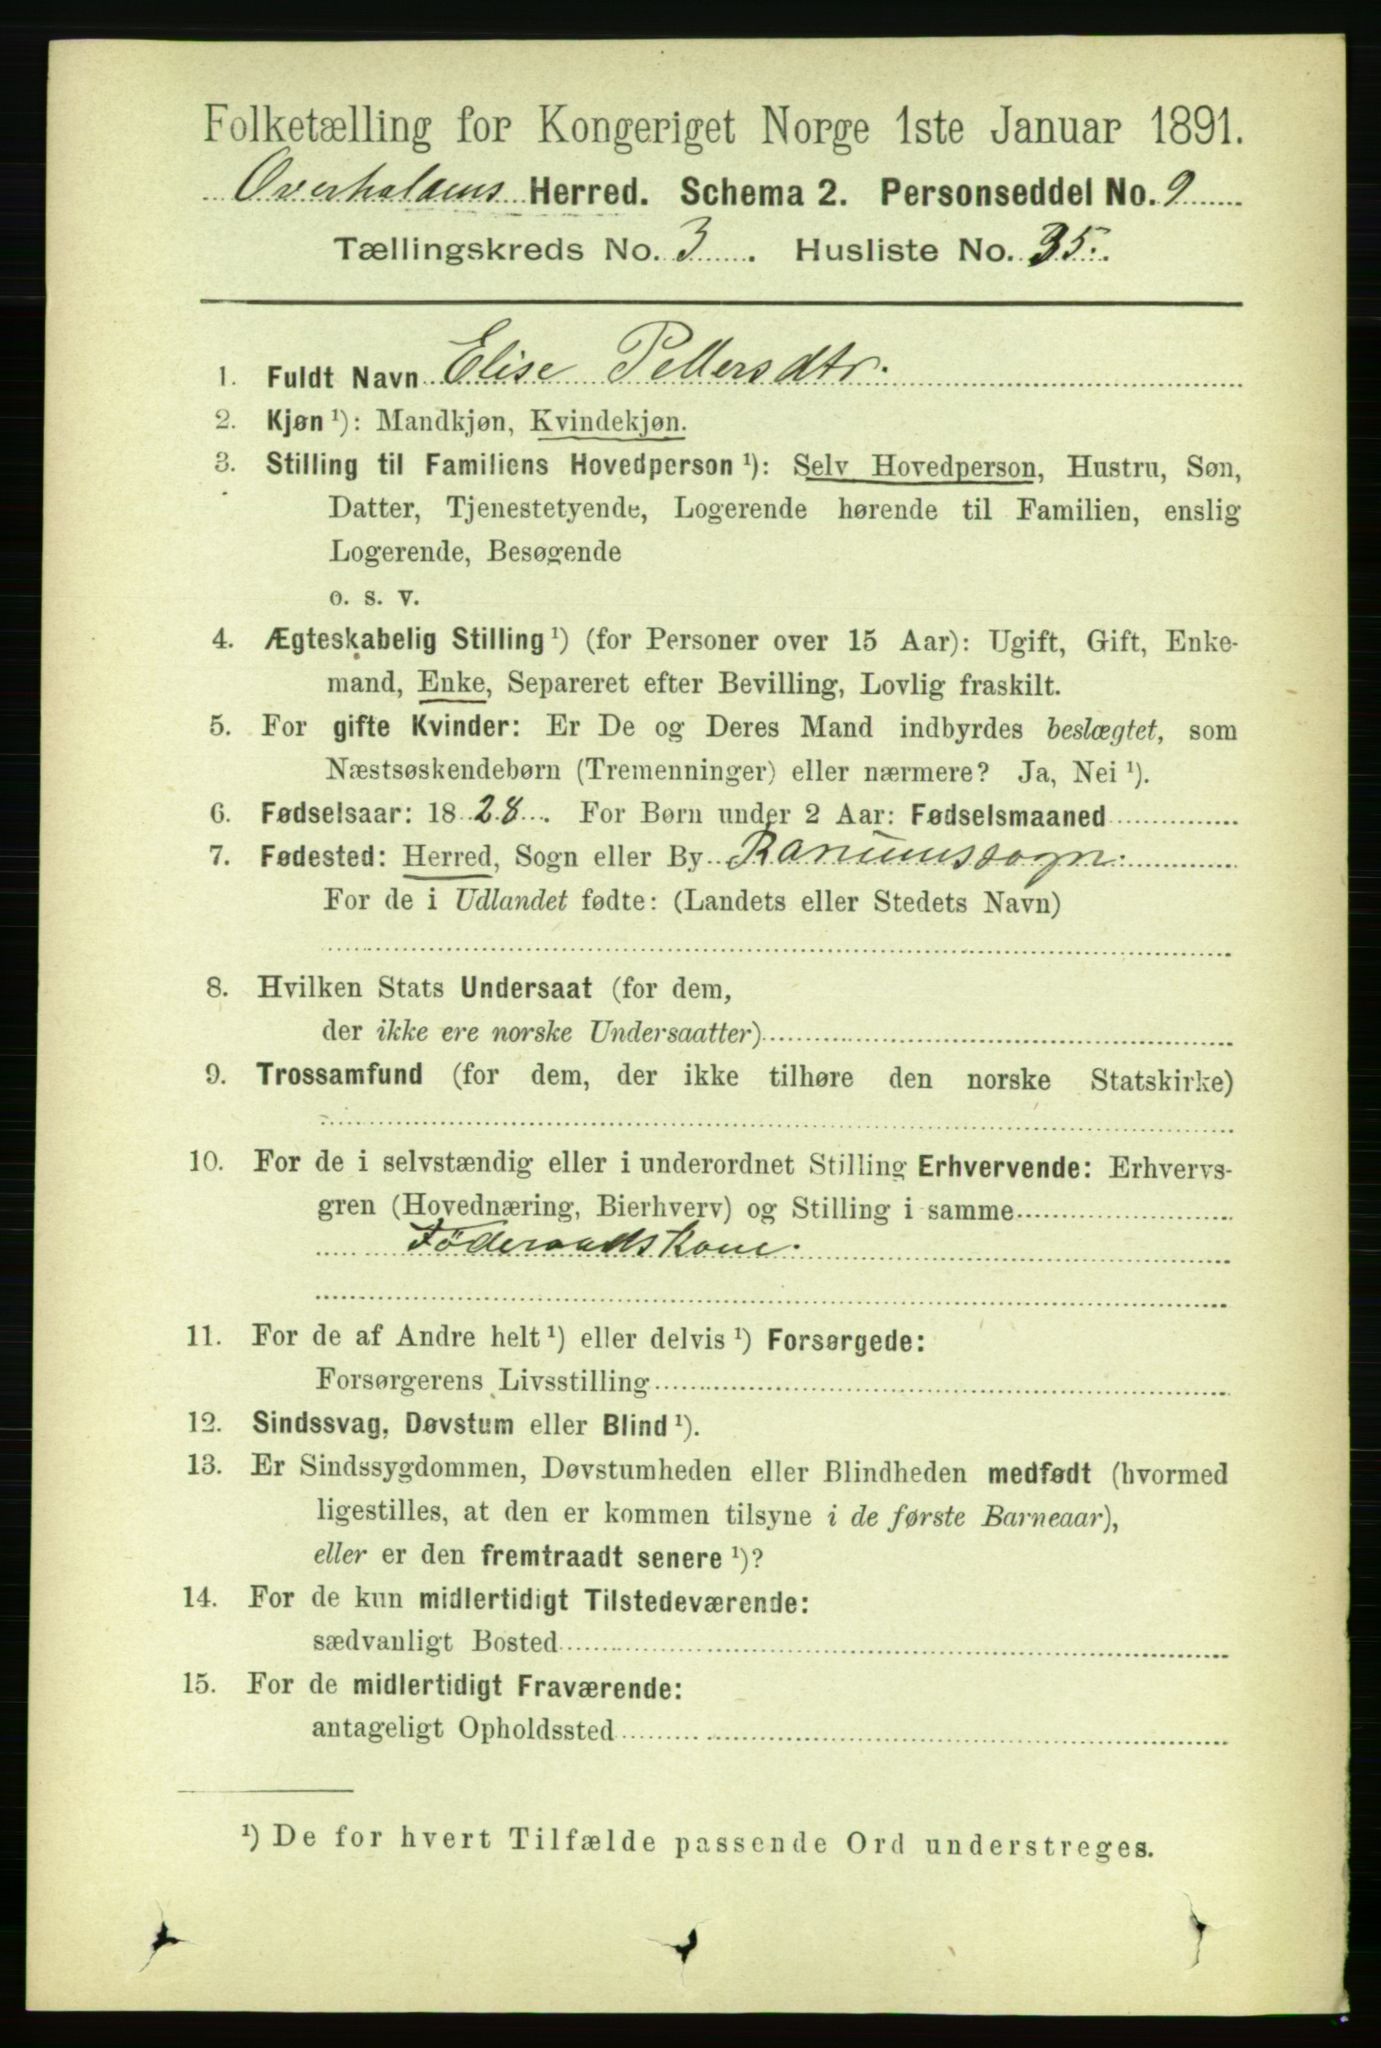 Folketælling for Kongeriget Norge 1ste Januar 1891.
Overhaldens Herred. Schema 2. Personseddel No. 9
Tællingskreds No. 3. Husliste No. 35.
1. Fuldt Navn Elise Pettersdtr.
2. Kjøn ¹): Mandkjøn, Kvindekjøn.
3. Stilling til Familiens Hovedperson ¹): Selv Hovedperson, Hustru, Søn,
Datter, Tjenestetyende, Logerende hørende til Familien, enslig
Logerende, Besøgende
o. s. v.
4. Ægteskabelig Stilling ¹) (for Personer over 15 Aar): Ugift, Gift, Enke-
mand, Enke, Separeret efter Bevilling, Lovlig fraskilt.
5. For gifte Kvinder: Er De og Deres Mand indbyrdes beslægtet, som
Næstsøskendebørn (Tremenninger) eller nærmere? Ja, Nei ¹).
6. Fødselsaar: 1828. For Børn under 2 Aar: Fødselsmaaned
7. Fødested: Herred, Sogn eller By Ranumssogn.
For de i Udlandet fødte: (Landets eller Stedets Navn)
8. Hvilken Stats Undersaat (for dem,
der ikke ere norske Undersaatter)
9. Trossamfund (for dem, der ikke tilhøre den norske Statskirke)
10. For de i selvstændig eller i underordnet Stilling Erhvervende: Erhvervs-
gren (Hovednæring, Bierhverv) og Stilling i samme
Föderaadskone.
11. For de af Andre helt ¹) eller delvis ¹) Forsørgede:
Forsørgerens Livsstilling
12. Sindssvag, Døvstum eller Blind ¹).
13. Er Sindssygdommen, Døvstumheden eller Blindheden medfødt (hvormed
ligestilles, at den er kommen tilsyne i de første Barneaar),
eller er den fremtraadt senere ¹)?
14. For de kun midlertidigt Tilstedeværende:
sædvanligt Bosted
15. For de midlertidigt Fraværende:
antageligt Opholdssted
¹) De for hvert Tilfælde passende Ord understreges.